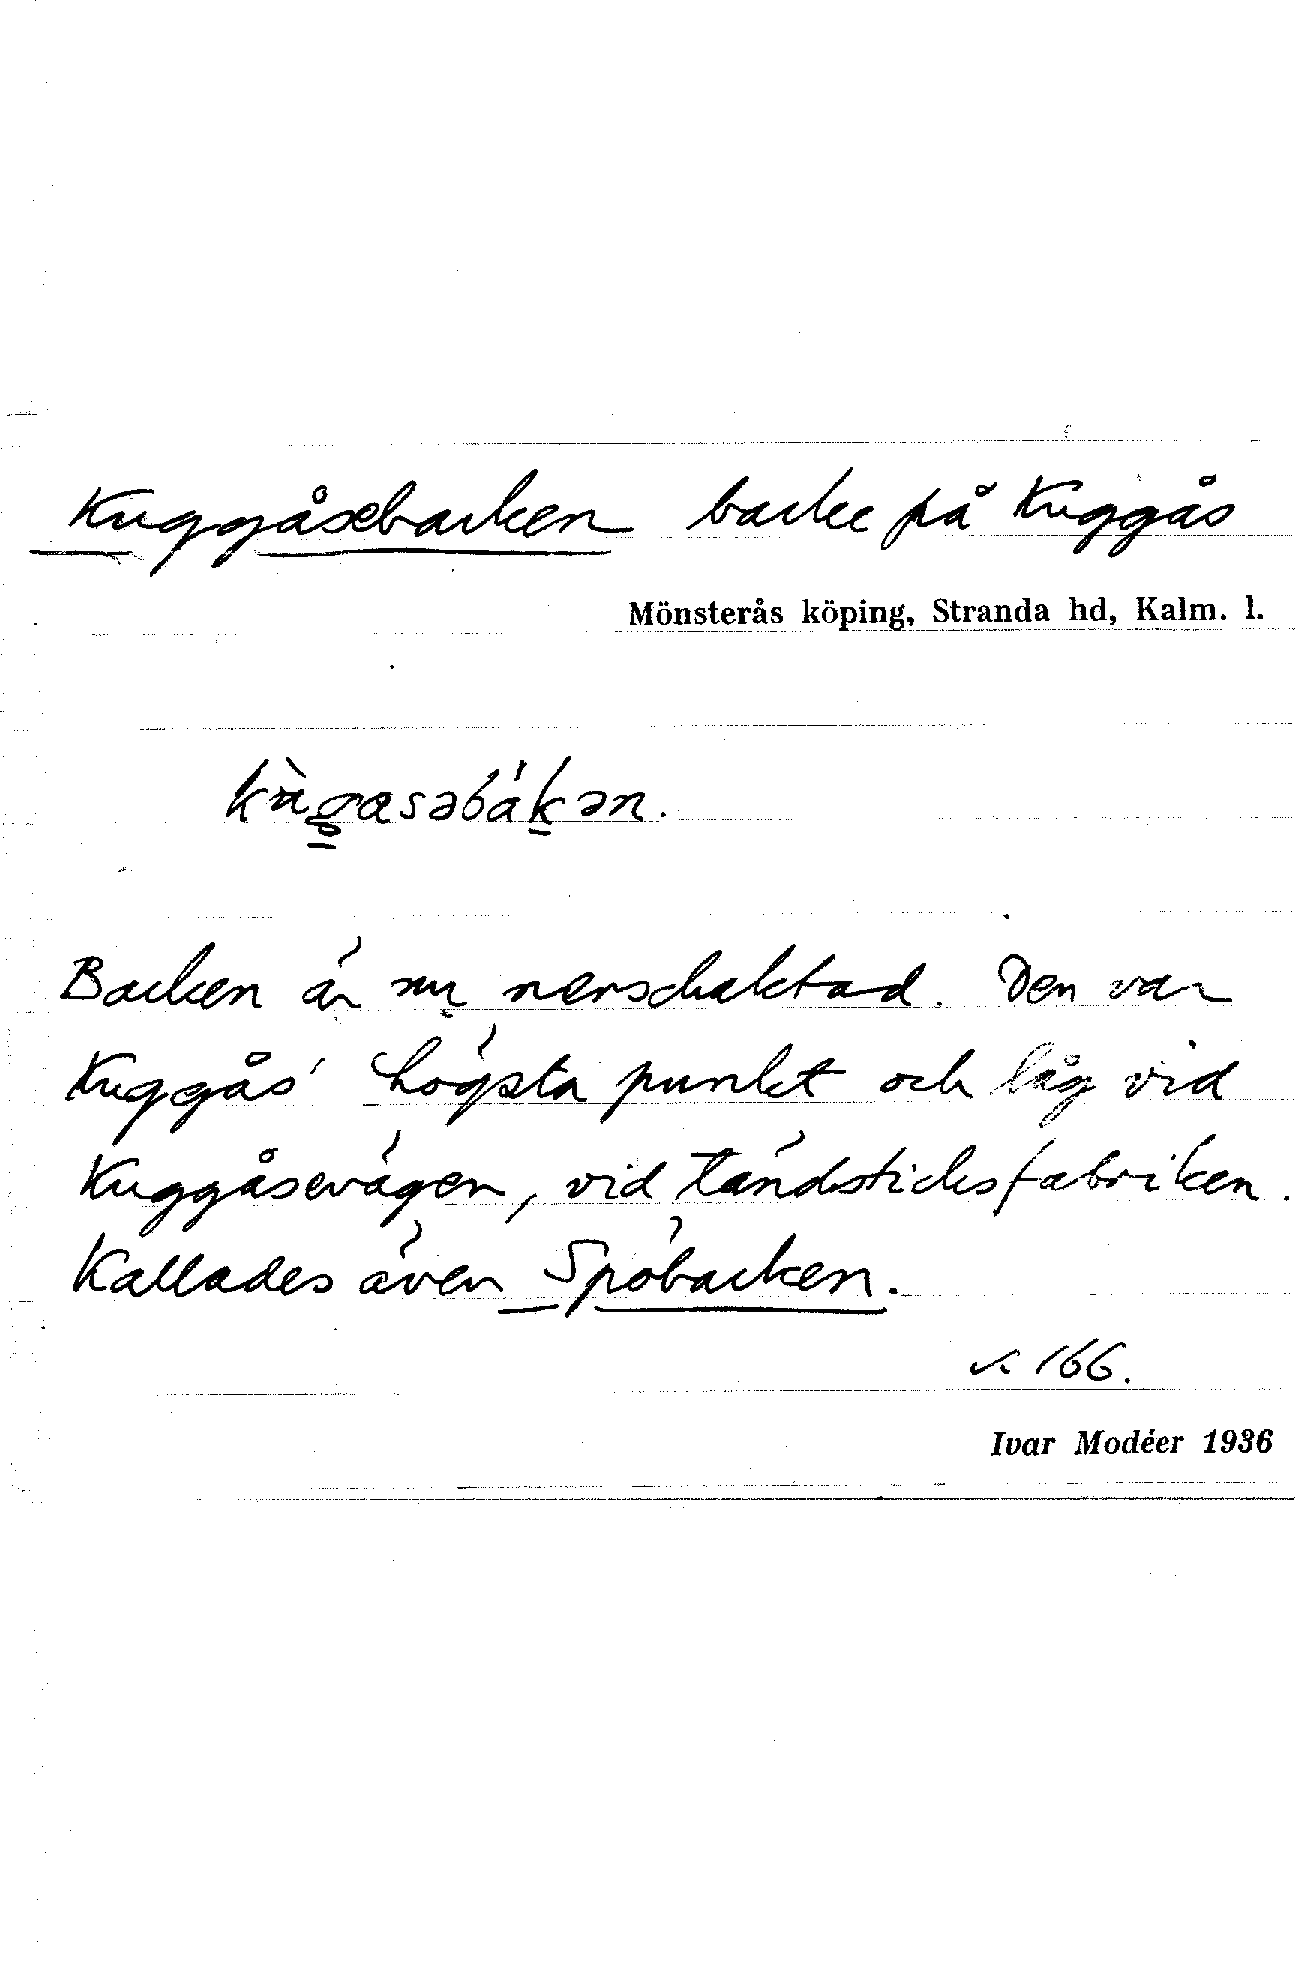 Kuggåsebacken backe på Kuggås
Mönsterås köping, Stranda hd, Kalm. l.
kùg̱asəbáḵən.
Backen är nu nerschaktad. Den var
Kuggås' högsta punkt och låg vid
Kuggåsevägen, vid Tändsticksfabriken.
Kallades även Spöbacken.
166.
Ivar Modéer 1936